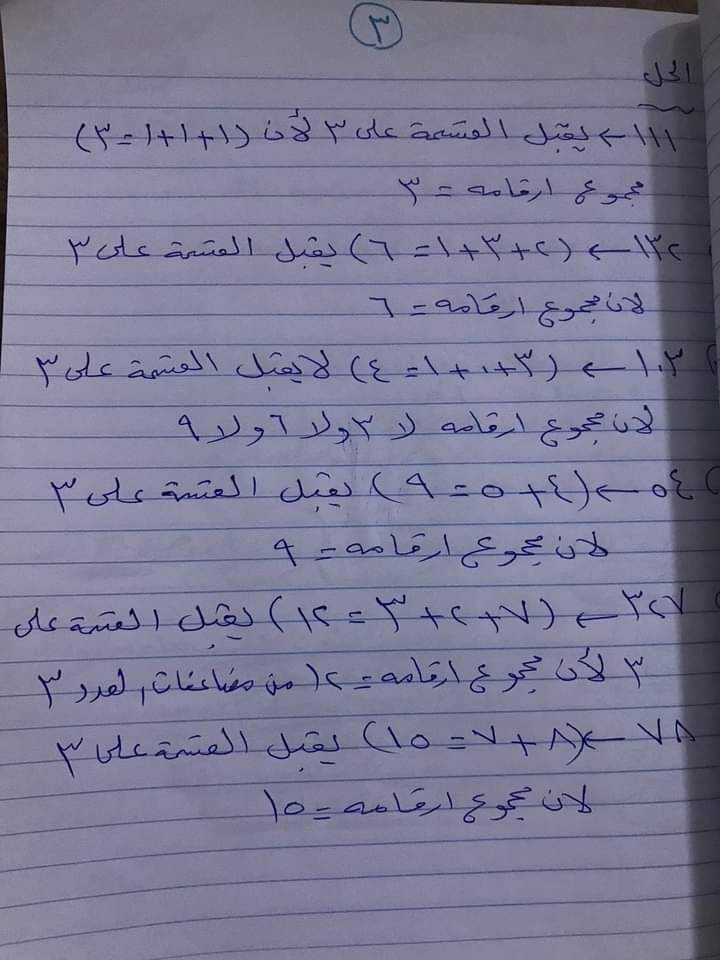 ٣
الحل
١١١ ← يقبل القسمة على ٣ لأن (١+١+١=٣)
مجموع ارقامه = ٣
١٣٢ ← (٢+٣+١=٦) يقبل القسمة على ٣
لان مجموع ارقامه = ٦
١٠٣ ← (٣+٠+١=٤) لا يقبل القسمة على ٣
لان مجموع ارقامه لا ٣ ولا ٦ ولا ٩
٥٤ ← (٤+٥=٩) يقبل القسمة على ٣
لان مجموع ارقامه = ٩
٣٢٧ ← (٧+٢+٣=١٢) يقبل القسمة على
٣ لأن مجموع ارقامه = ١٢ من مضاعفات العدد ٣
٧٨ ← (٨+٧=١٥) يقبل القسمة على ٣
لان مجموع ارقامه = ١٥